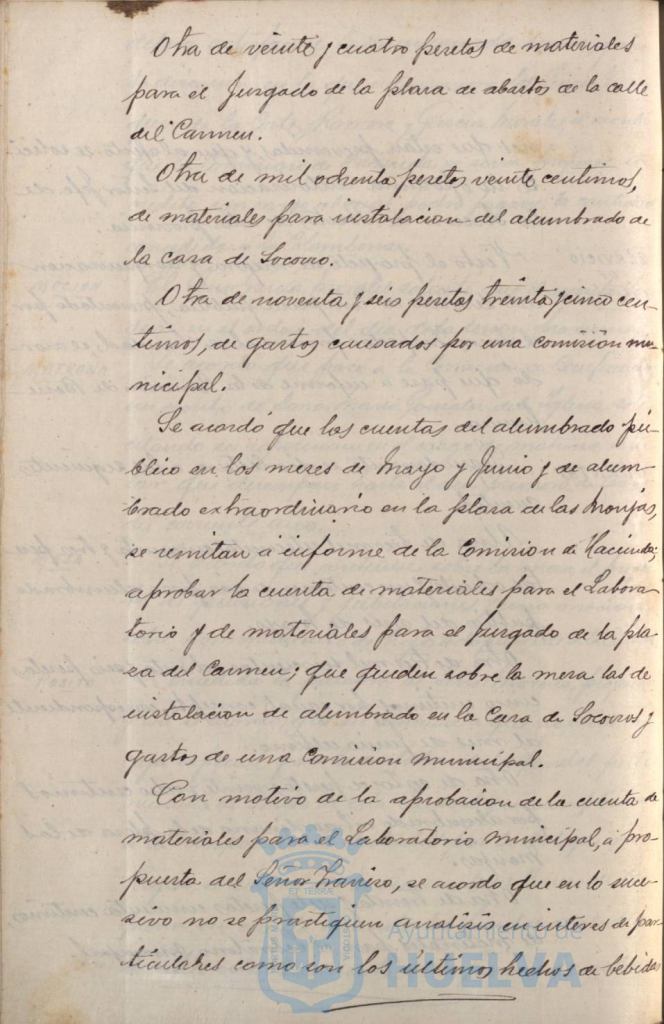 Otra de veinte y cuatro pesetas de materiales
para el Juzgado de la plaza de abastos de la calle
del Carmen.
Otra de mil ochenta pesetas veinte centimos,
de materiales para instalacion del alumbrado de
la casa de Socorro.
Otra de noventa y seis pesetas treinta y cinco cen-
timos, de gastos causados por una comisión mu-
nicipal.
Se acordó que las cuentas del alumbrado pú-
blico en los meses de Mayo y Junio y de alum-
brado extraordinario en la plaza de las Monjas,
se remitan á informe de la Comision de Hacienda;
aprobar la cuenta de materiales para el Labora-
torio y de materiales para el juzgado de la pla-
za del Carmen; que queden sobre la mesa las de
instalacion de alumbrado en la Casa de Socorros y
gastos de una Comision municipal.
Con motivo de la aprobacion de la cuenta de
materiales para el Laboratorio municipal, á pro-
puesta del Señor, se acordo que en lo suce-
sivo no se practiquen analisis en interes de par-
ticulares como son los últimos hechos de bebidas
Ayuntamiento de
HUELVA